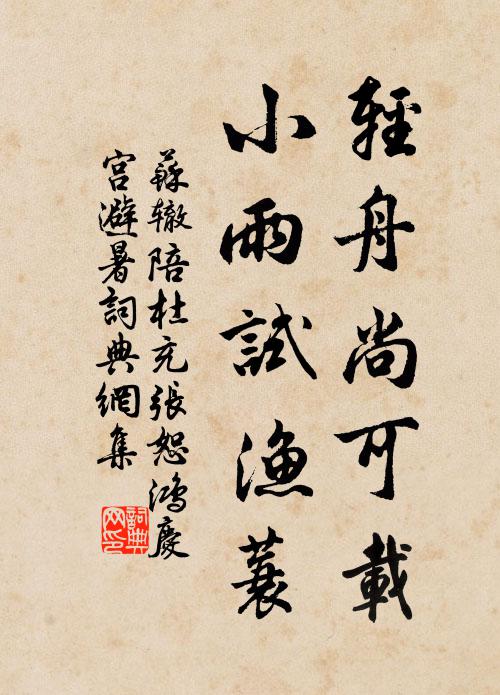 輕舟尚可載
小雨試漁蓑
蘇轍陪杜充張恕鴻慶
宮避暑詞典網集
詞典网印